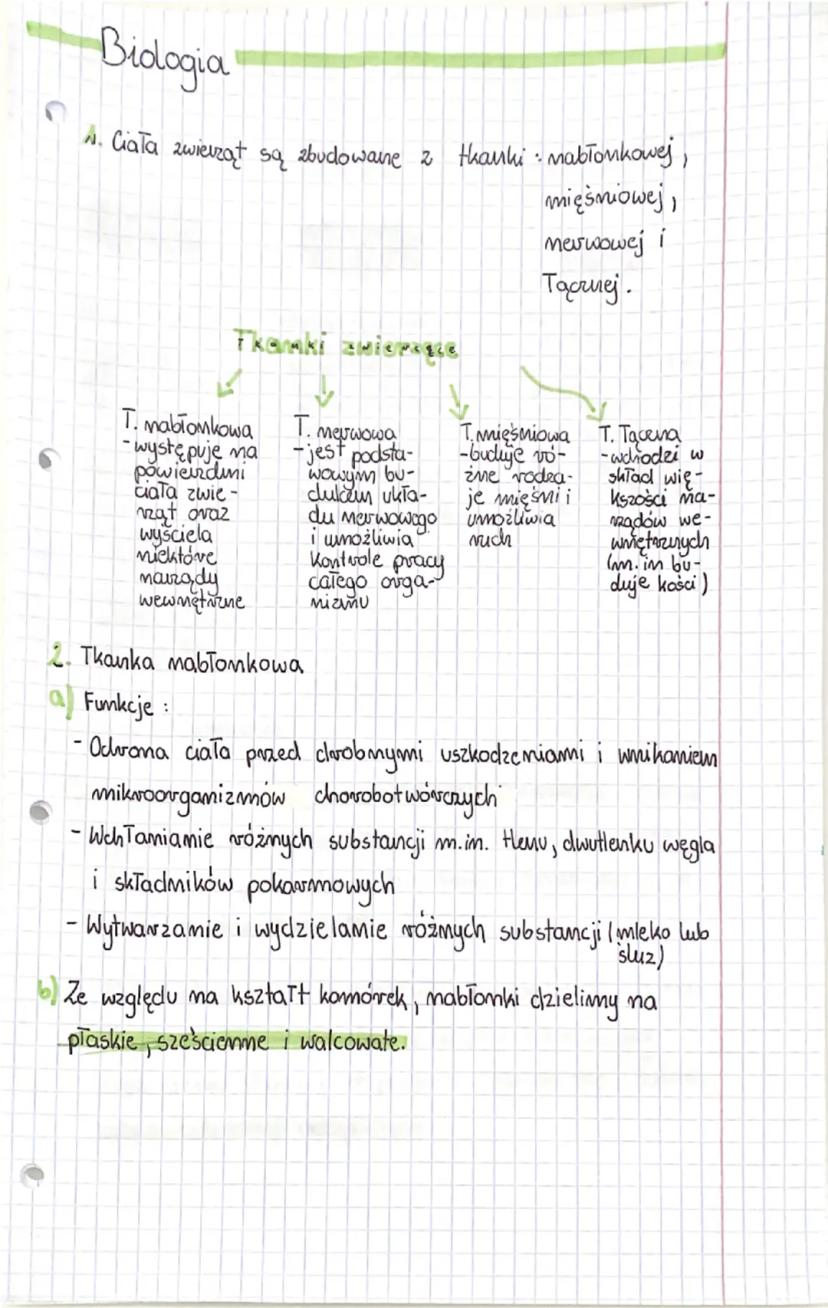 Biologia
1. Ciała zwierząt są zbudowane z tkanki: nabłonkowej,
mięśniowej,
nerwowej i
łącznej.
Tkanki zwierzęce
T. nabłonkowa
- występuje na
powierzchni
ciała zwie-
rząt oraz
wyściela
niektóre
narządy
wewnętrzne
T. nerwowa
- jest podsta-
wowym bu-
dulcem ukła-
du nerwowego
i umożliwia
kontrole pracy
całego orga-
nizmu
T. mięśniowa
- buduje ró-
żne rodza-
je mięśni i
umożliwia
ruch
T. łączna
- wchodzi w
skład wię-
kszości na-
rządów we-
wnętrznych
(m.in bu-
duje kości)
2. Tkanka nabłonkowa
a) Funkcje:
- Ochrona ciała przed drobnymi uszkodzeniami i wnikaniem
mikroorganizmów chorobotwórczych
- Wchłanianie różnych substancji m.in. tlenu, dwutlenku węgla
i składników pokarmowych
- Wytwarzanie i wydzielanie różnych substancji (mleko lub
śluz)
b) Ze względu na kształt komórek, nabłonki dzielimy na
płaskie, sześcienne i walcowate.